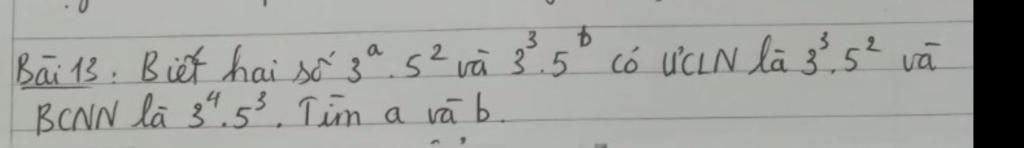 Bài 13: Biết hai số 3^a.5^2 và 3^3.5^b có ƯCLN là 3^3.5^2 và
BCNN là 3^4.5^3. Tìm a và b.